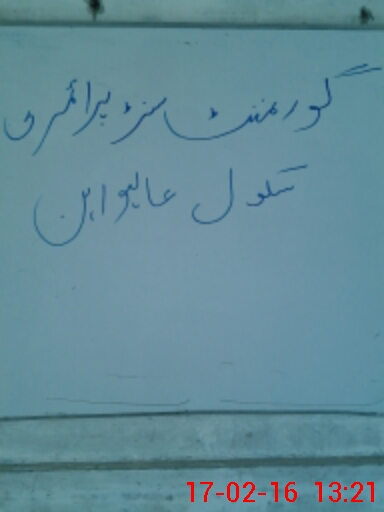 گورمنٹ سنٹ پرائمری
سکول عالیوا ین
17-02-16 13:21